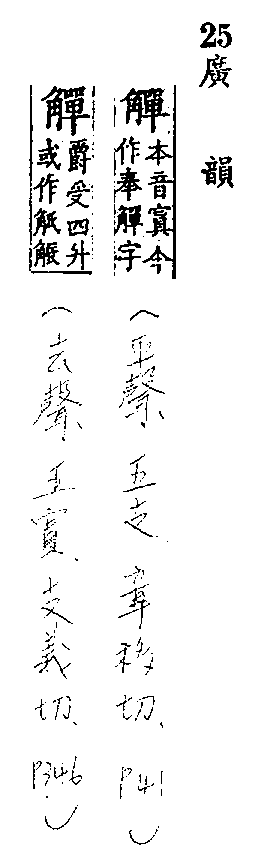 25 廣韻
觶 本音寘今
作奉觶字
(平聲、五支 章移切、P41)
觶 爵受四升
或作觗
(去聲、五寘、支義切、P346)